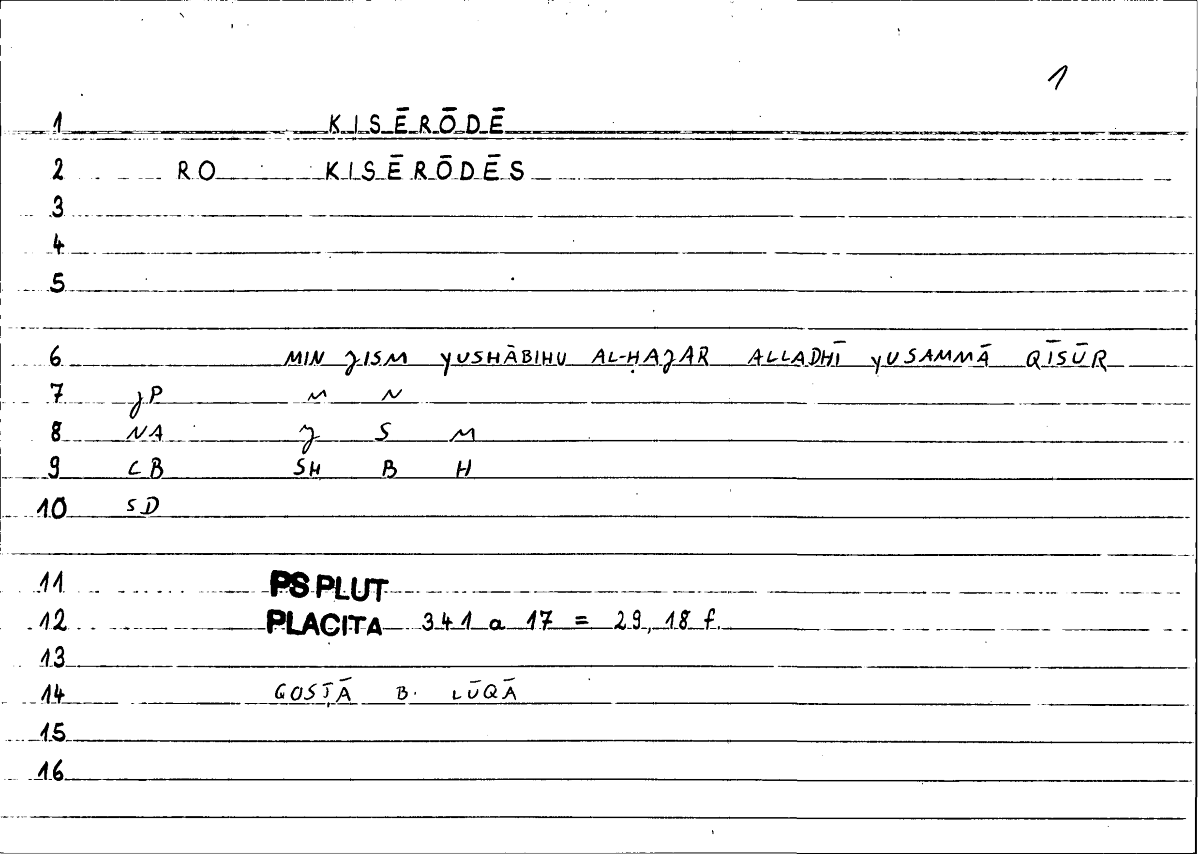 1
1 KISĒRŌDĒ
2 RO KISĒRŌDĒS
3
4
5
6 MIN JISM YUSHĀBIHU AL-ḤAJAR ALLADHĪ YUSAMMĀ QĪSŪR
7 JP M N
8 NA J S M
9 CB SH B H
10 SD
11 PS PLUT
12 PLACITA 341 a 17 = 29,18 f.
13
14 GOSṬĀ B. LŪQĀ
15
16